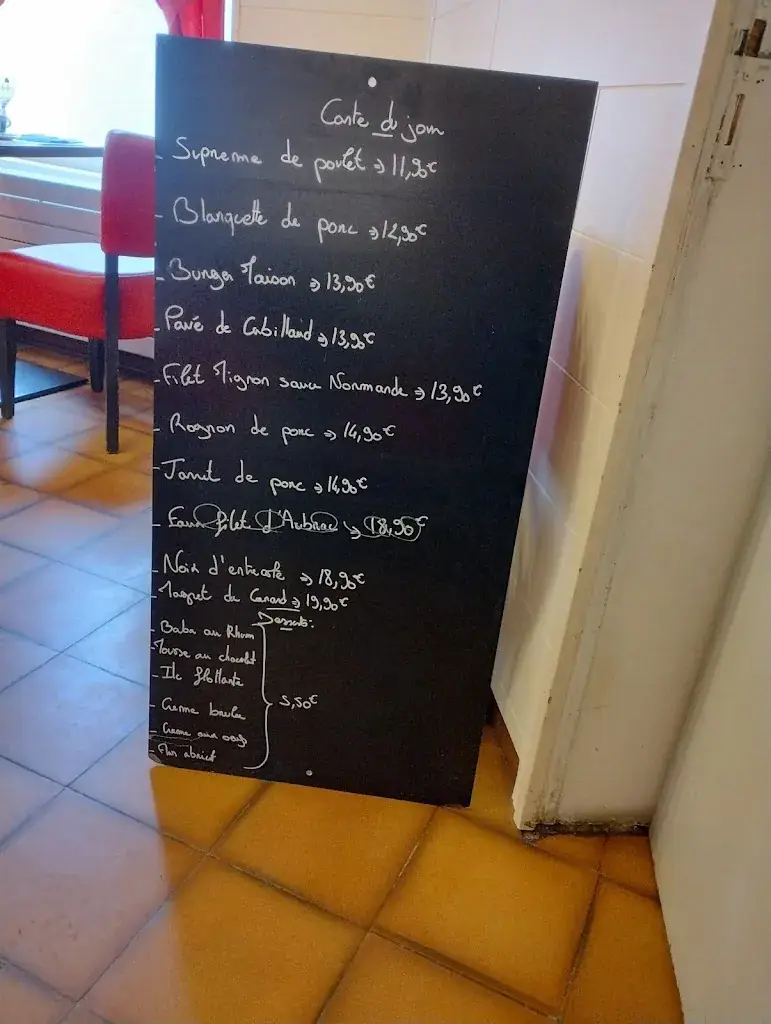 Carte du jour
- Supreme de poulet → 11,90€
- Blanquette de porc → 12,90€
- Burger Maison → 13,90€
- Pavé de Cabillaud → 13,90€
- Filet Mignon sauce Normande → 13,90€
- Rognon de porc → 14,90€
- Jarret de porc → 14,90€
- Faux filet d'Aubrac → 18,90€
- Noix d'entrecote → 18,90€
- Magret de Canard → 19,90€
Desserts:
- Baba au Rhum
- Mousse au chocolat
- Ile flottante
- Creme brulee
- Creme aux oeufs
- Flan abricot
5,50€